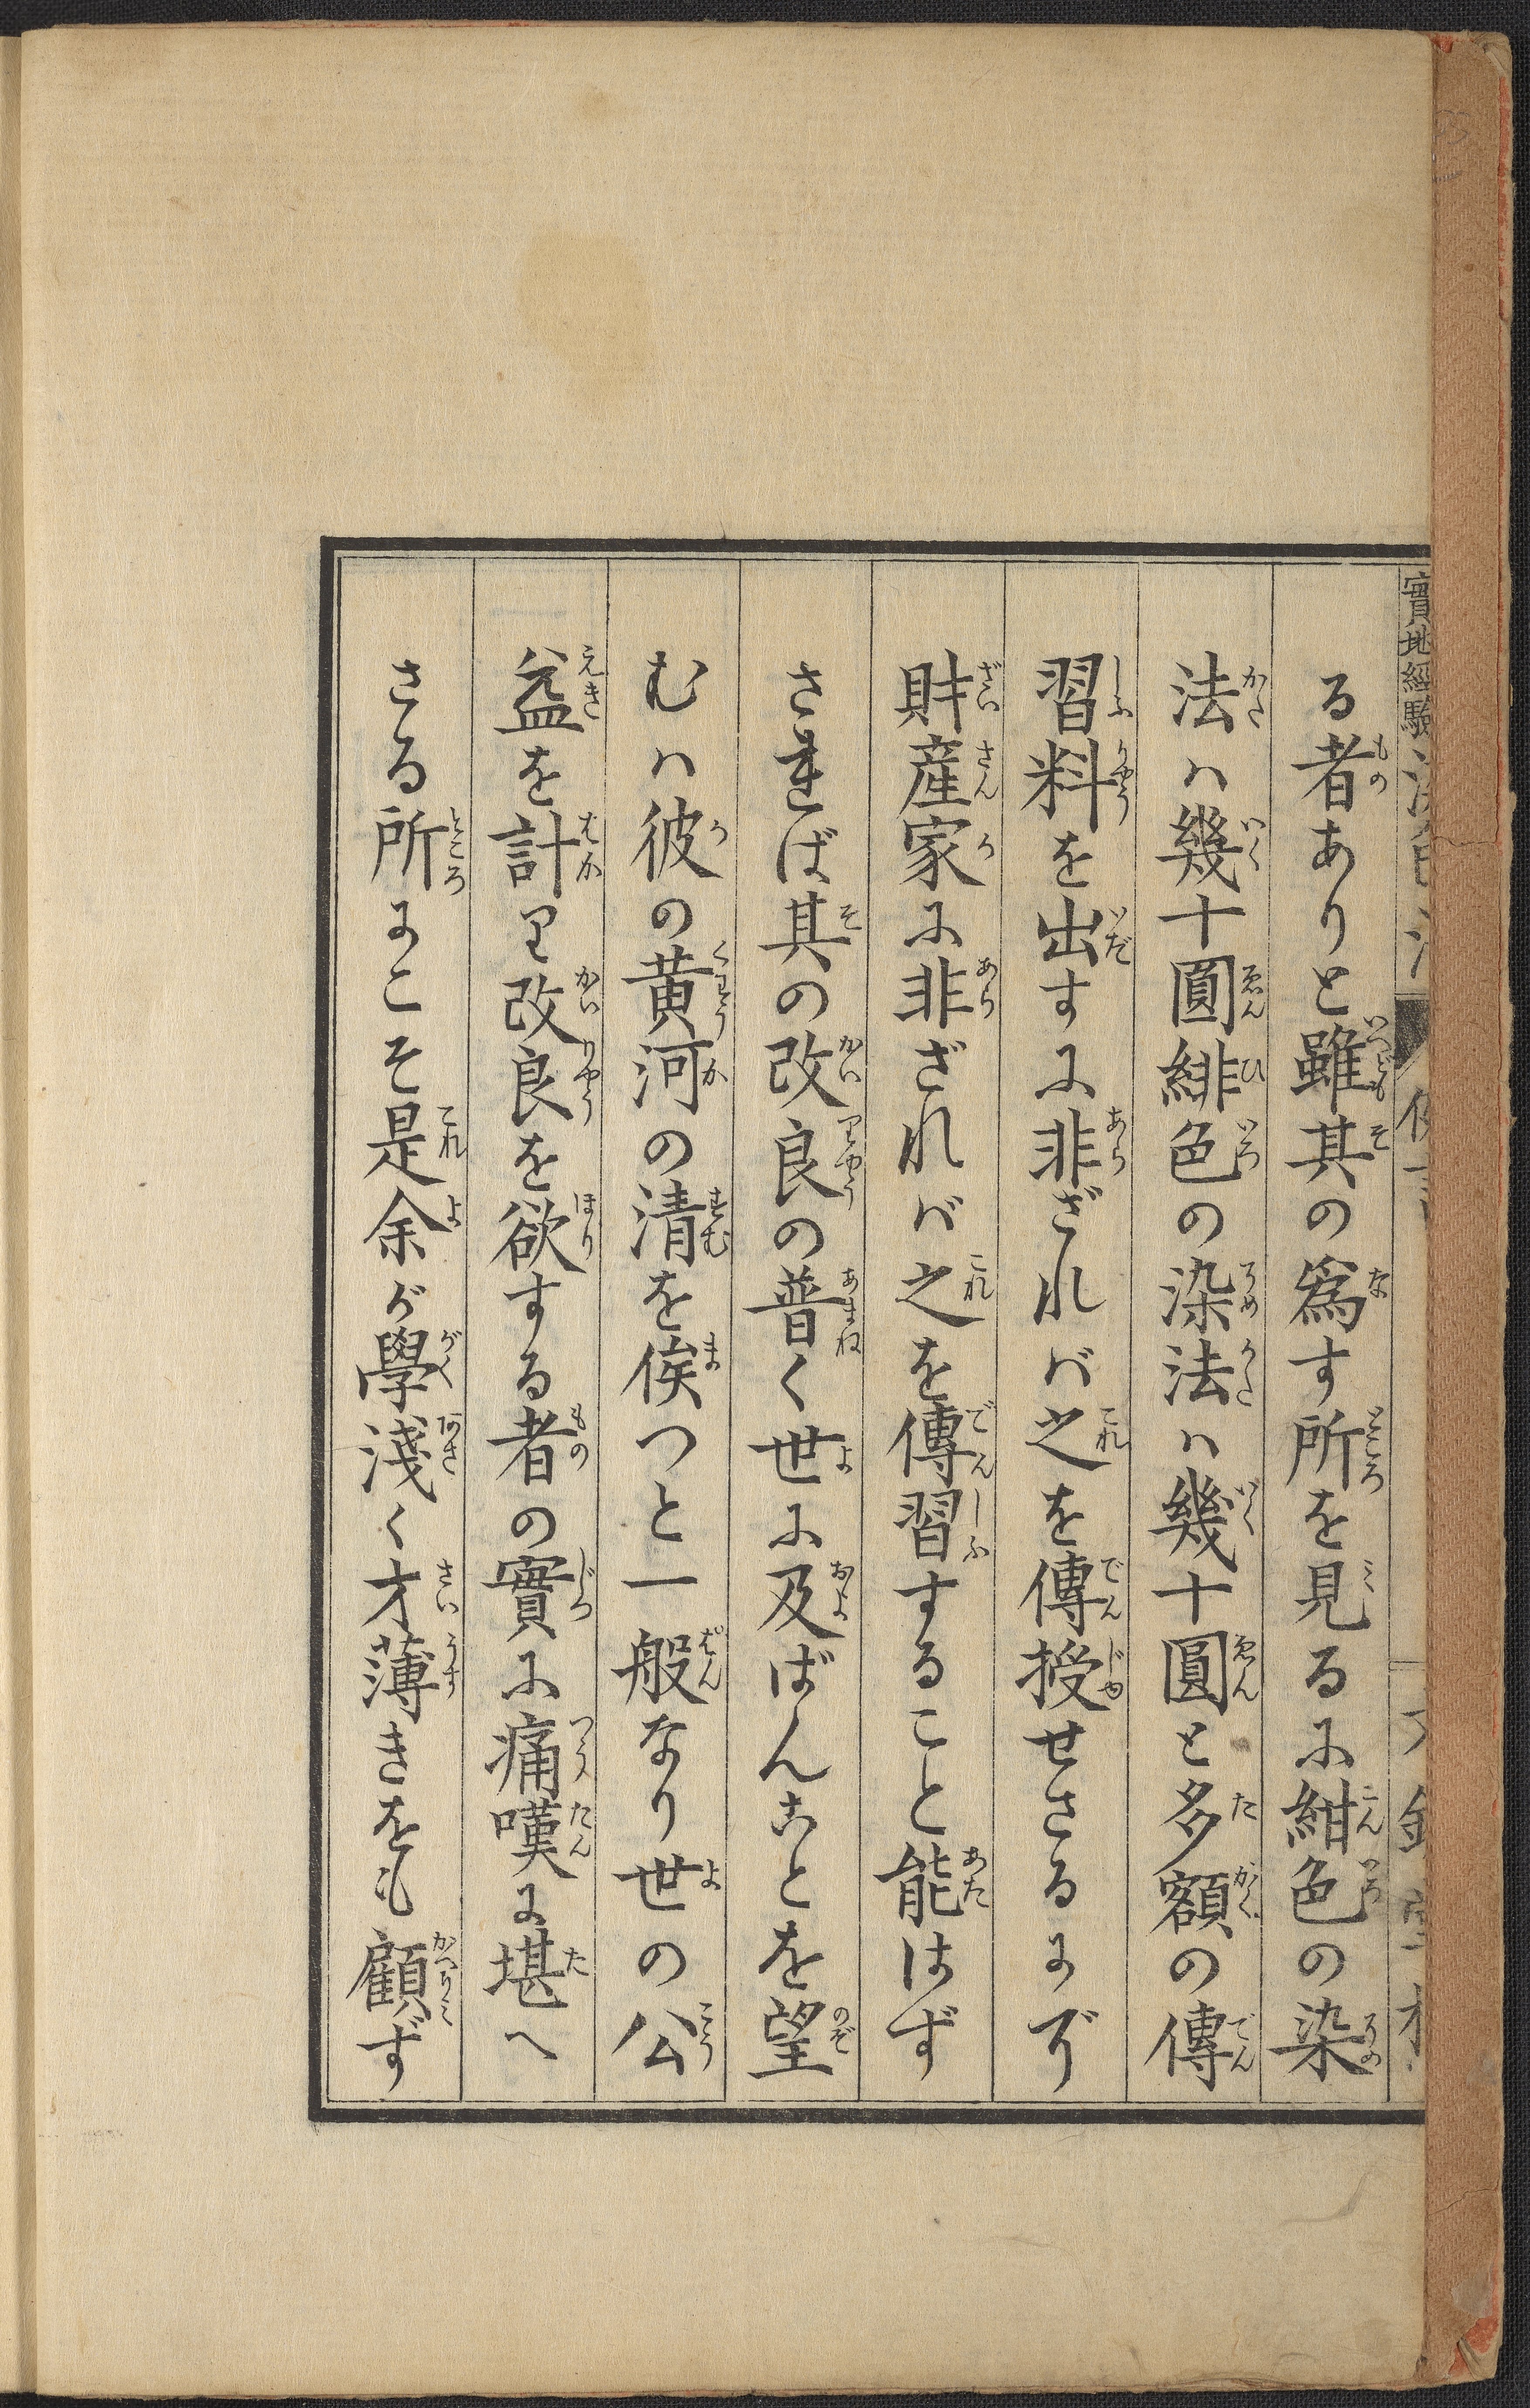 實地經驗
る者ありと雖其の爲す所を見るに紺色の染
法ハ幾十圓緋色の染法ハ幾十圓と多額の傳
習料を出すに非ざれバ之を傳授せさるにゾ
財産家に非ざれバ之を傳習すること能はず
されば其の改良の普く世に及ばんことを望
むハ彼の黄河の清を俟つと一般なり世の公
益を計り改良を欲する者の實に痛嘆に堪へ
さる所にこそ是余ガ學淺く才薄きをも顧ず